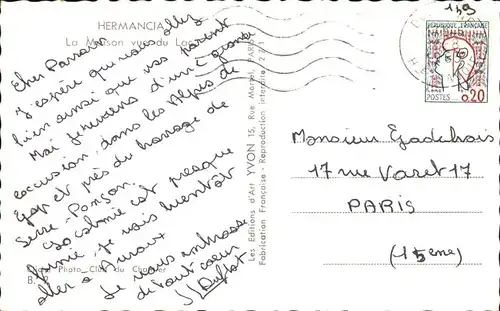 HERMANCIA
La Maison vue du Lac
Cher Parrain
J'espère que vous allez
bien ainsi que vos parent
Moi je reviens d'une grande
excursion dans les Alpes de
Gap et près du barrage de
Serre-Ponçon.
La colonie est presque
finie, je vais bientôt
aller à
Je vous embrasse
de tout coeur
Photo Club du
B.
Les Editions d'Art YVON 15, Rue Martel, PARIS
Fabrication Française - Reproduction interdite
139
REPUBLIQUE FRANÇAISE
POSTES
0,20
Monsieur
17 rue Varet 17
PARIS
(15ème)